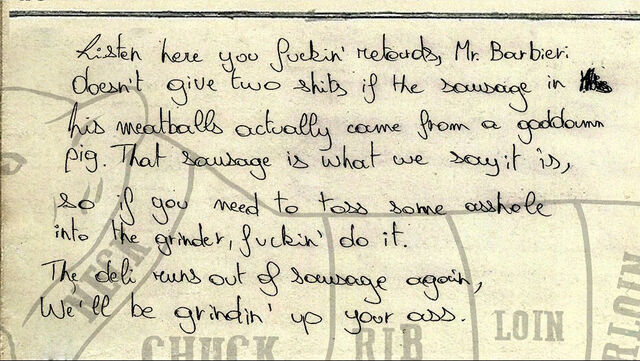 Listen here you fuckin' retards, Mr. Barbieri
doesn't give two shits if the sausage in
his meatballs actually came from a goddamn
pig. That sausage is what we say it is,
so if you need to toss some asshole
into the grinder, fuckin' do it.
The deli runs out of sausage again,
We'll be grindin' up your ass.
NECK
CHUCK
RIB
LOIN
SIRLOIN